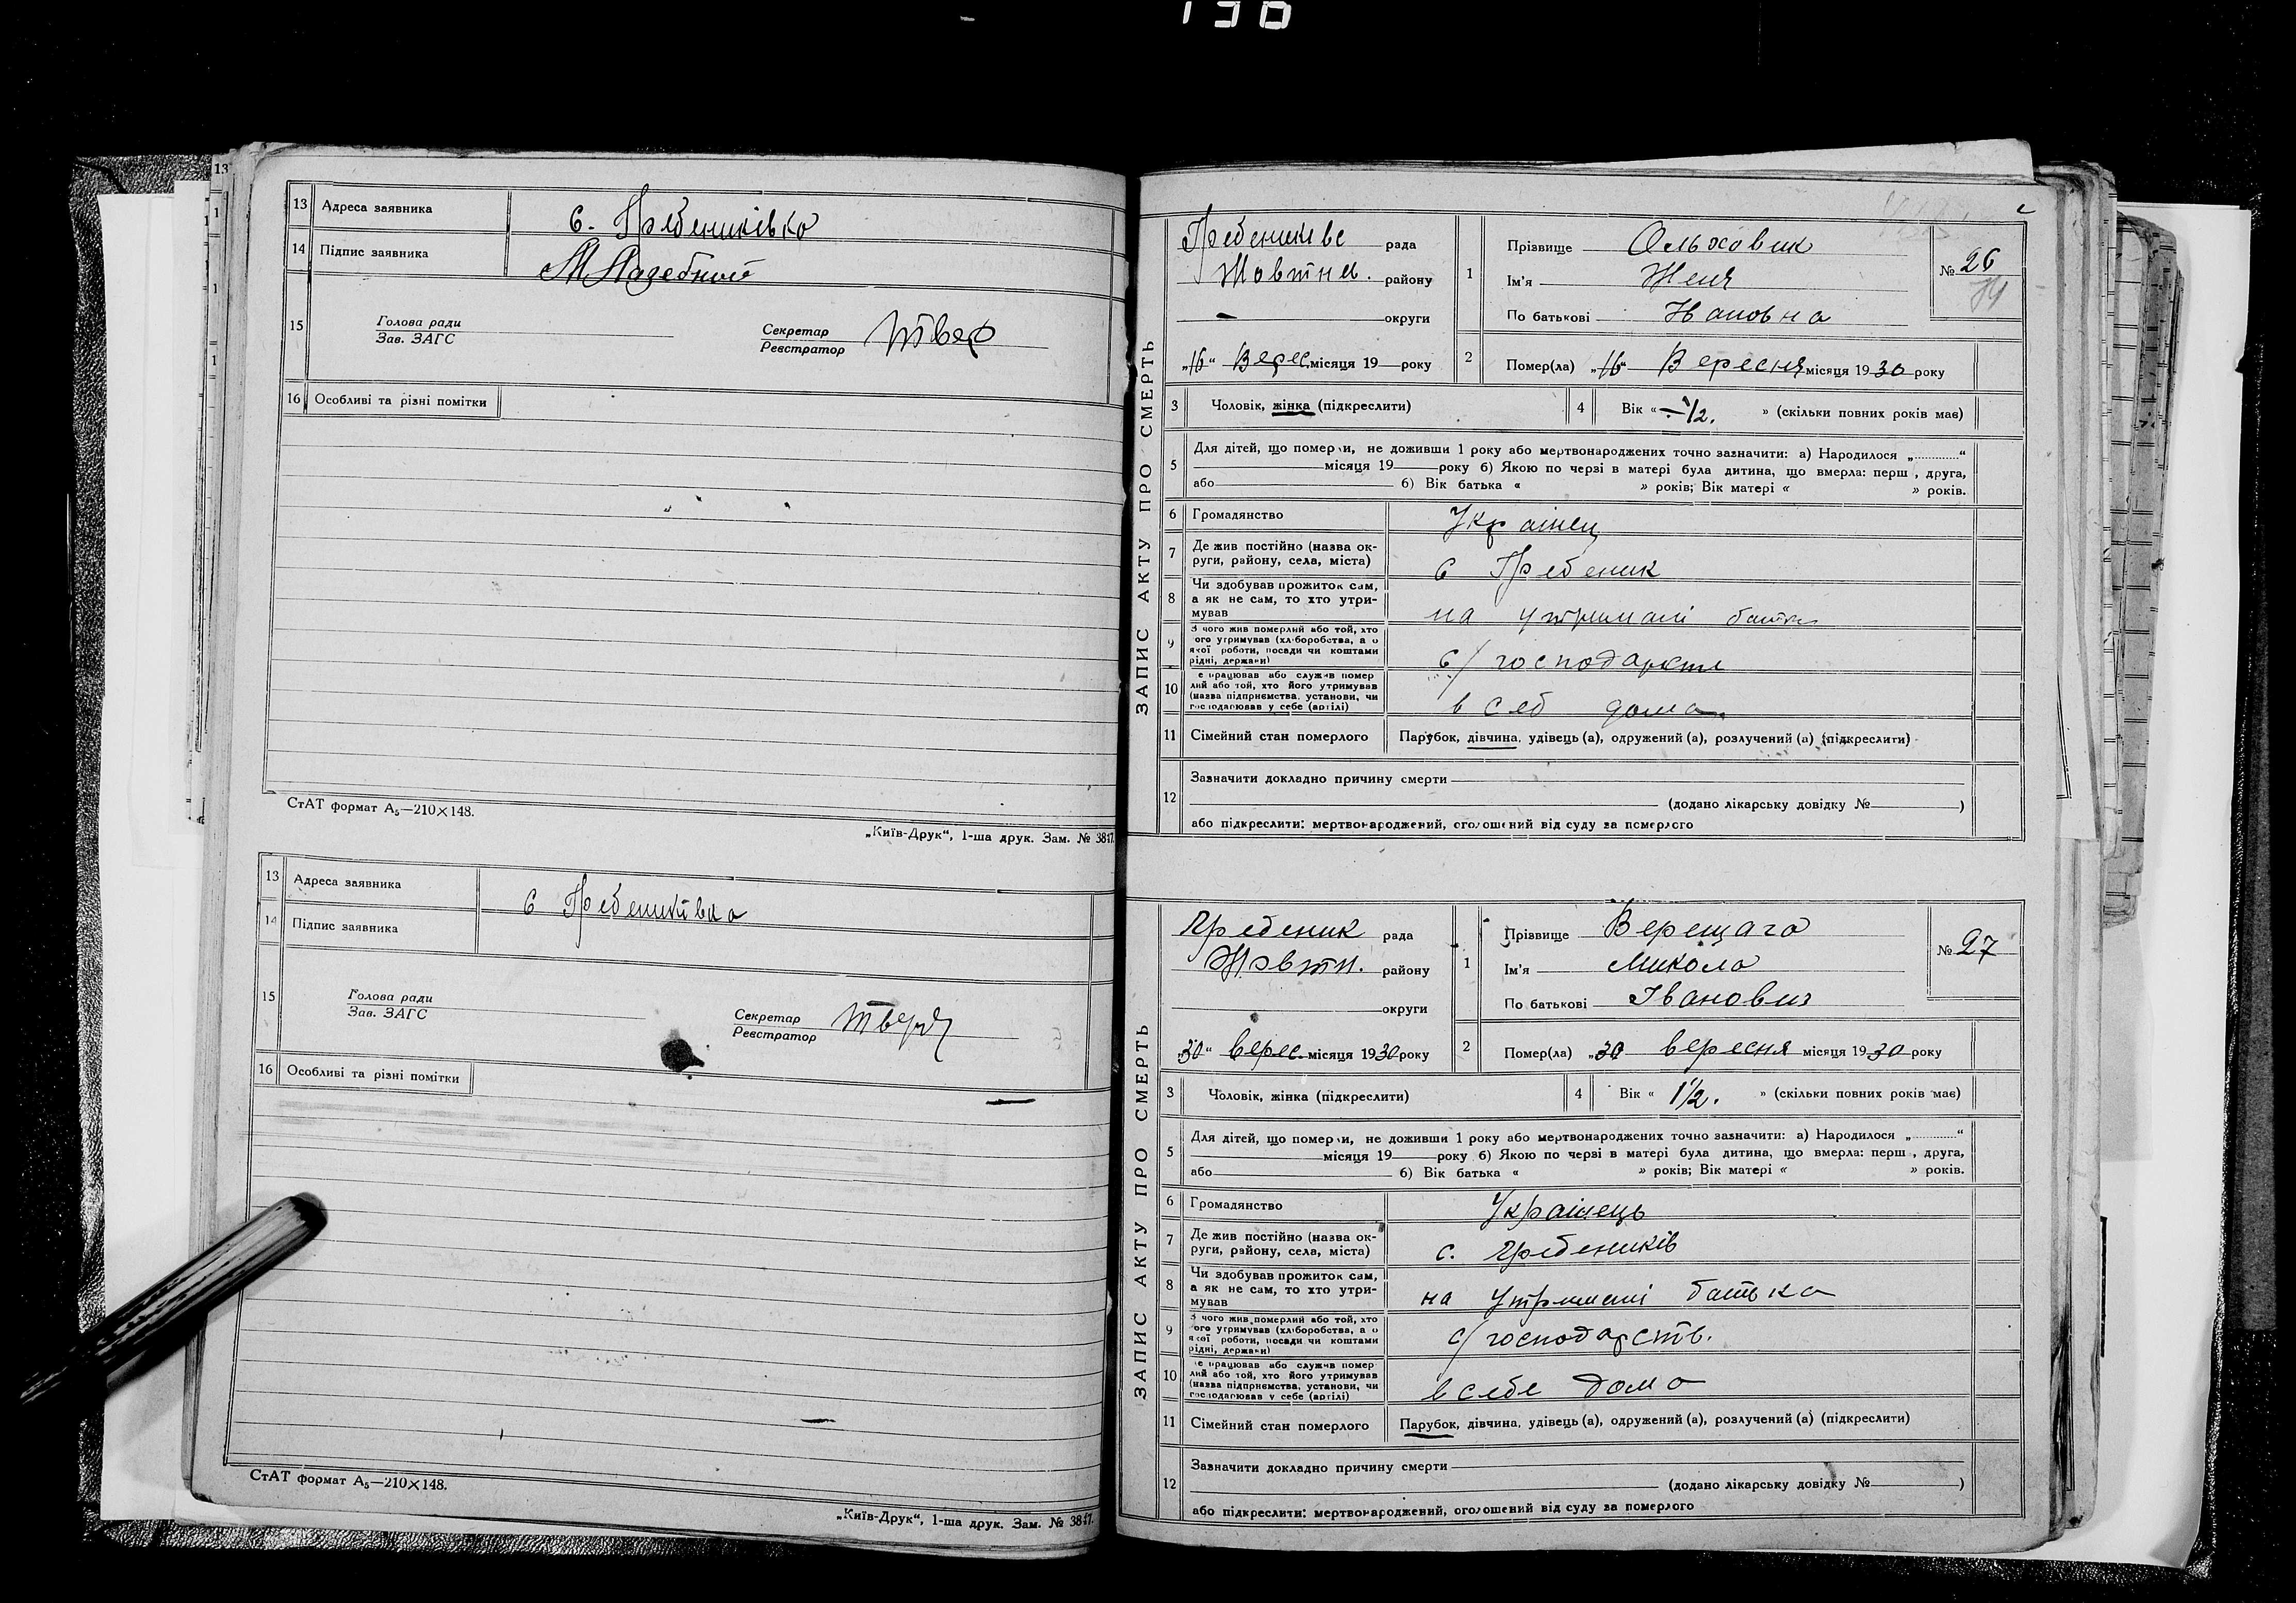 13 Адреса заявника с. Гребениківка
14 Підпис заявника М Нагебний
15 Голова ради
Зав. ЗАГС
Секретар
Реєстратор
16 Особливі та різні помітки
СтАТ формат А₅—210×148.
„Київ-Друк“, 1-ша друк. Зам. № 3847.
13 Адреса заявника с Гребениківка
14 Підпис заявника
15 Голова ради
Зав. ЗАГС
Секретар
Реєстратор
16 Особливі та різні помітки
СтАТ формат А₅—210×148.
„Київ-Друк“, 1-ша друк. Зам. № 3847.
ЗАПИС АКТУ ПРО СМЕРТЬ
Гребеникивс рада
Жовтнев. району
округи
„16“ Верес. місяця 19 року
1 Прізвище Ольховик
Ім'я Женя
По батькові Івановна
№ 26
2 Помер(ла) „16“ Вересня місяця 1930 року
3 Чоловік, жінка (підкреслити)
4 Вік « 1/2. » (скільки повних років має)
5 Для дітей, що померли, не доживши 1 року або мертвонароджених точно зазначити: а) Народилося „ “
місяця 19 року б) Якою по черзі в матері була дитина, що вмерла: перш , друга,
або б) Вік батька « » років; Вік матері « » років.
6 Громадянство Украінец
7 Де жив постійно (назва ок-
руги, району, села, міста) с Гребеник
8 Чи здобував прожиток сам,
а як не сам, то хто утри-
мував на утримані батка
9 З чого жив померлий або той, хто
його утримував (хліборобства, а о
якої роботи, посади чи коштами
рідні, держави) с/господаркти
10 е працював або служив помер
лий або той, хто його утримував
(назва підприємства, установи, чи
господарював у себе (артілі) в себ дома.
11 Сімейний стан померлого Парубок, дівчина, удівець (а), одружений (а), розлучений (а) (підкреслити)
12 Зазначити докладно причину смерти
(додано лікарську довідку № )
або підкреслити: мертвонароджений, оголошений від суду за померлого
ЗАПИС АКТУ ПРО СМЕРТЬ
Гребеник рада
Жовтн. району
округи
„30“ верес. місяця 1930 року
1 Прізвище Верещага
Ім'я Микола
По батькові Івановиз
№ 27
2 Помер(ла) „30 вересня місяця 1930 року
3 Чоловік, жінка (підкреслити)
4 Вік « 1 1/2. » (скільки повних років має)
5 Для дітей, що померли, не доживши 1 року або мертвонароджених точно зазначити: а) Народилося „ “
місяця 19 року б) Якою по черзі в матері була дитина, що вмерла: перш , друга,
або б) Вік батька « » років; Вік матері « » років.
6 Громадянство Украінець
7 Де жив постійно (назва ок-
руги, району, села, міста) с. Гребеників
8 Чи здобував прожиток сам,
а як не сам, то хто утри-
мував на утримані батька
9 З чого жив померлий або той, хто
його утримував (хліборобства, а о
якої роботи, посади чи коштами
рідні, держави) с/господарств.
10 е працював або служив помер
лий або той, хто його утримував
(назва підприємства, установи, чи
господарював у себе (артілі) в себе дома
11 Сімейний стан померлого Парубок, дівчина, удівець (а), одружений (а), розлучений (а) (підкреслити)
12 Зазначити докладно причину смерти
(додано лікарську довідку № )
або підкреслити: мертвонароджений, оголошений від суду за померлого